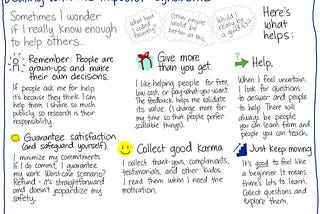 Dealing with the Impostor Syndrome
Sometimes I wonder
if I really know enough
to help others...
What have
I coded
recently?
Other people
would be
better at this.
Would I
really be a
good fit?
Here's
what
helps:
Remember: People are
grown-ups and make
their own decisions.
If people ask me for help,
it's because they think I can
help them. I share so much
publicly, so research is their
responsibility.
Give more
than you get
I like helping people for free,
low cost, or pay-what-you-want.
The feedback helps me validate
its value. (I charge more for
my time so that people prefer
scalable things).
Help.
When I feel uncertain,
I look for questions
to answer and people
to help. There will
always be people
you can learn from and
people you can teach.
Guarantee satisfaction
(and safeguard yourself).
I minimize my commitments.
If I do commit, I guarantee
my work. Worst-case scenario?
Refund - it's straightforward
and doesn't jeopardize my
safety.
Collect good karma
I collect thank-yous, compliments,
testimonials, and other kudos.
I read them when I need the
motivation.
Just keep moving
It's good to feel like
a beginner. It means
there's lots to learn.
Collect questions and
explore them.